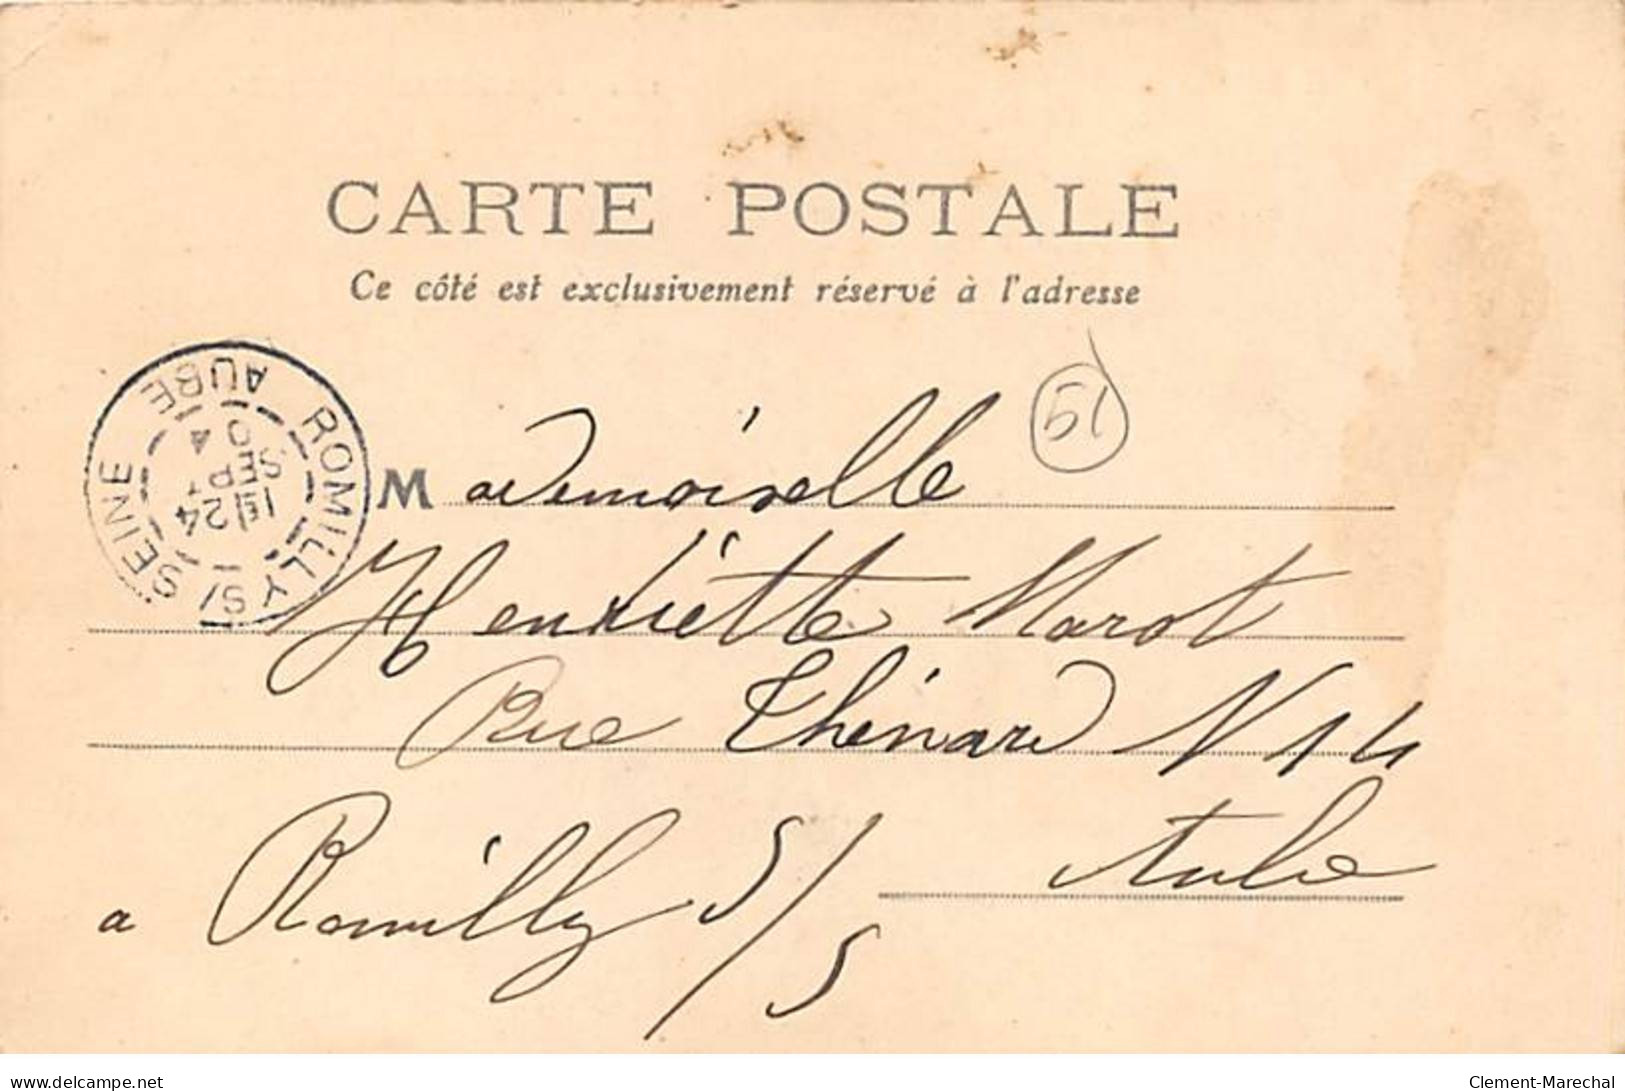 CARTE POSTALE
Ce côté est exclusivement réservé à l'adresse
51
Mademoiselle
Henriette Marot
Rue Thénard N 14
a Romilly S/S
Aube
ROMILLY S/ SEINE
AUBE
1E
24
SEPT
04
www.delcampe.net
Clement-Marechal